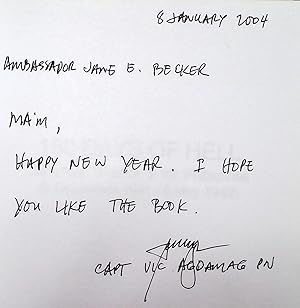 8 JANUARY 2004
AMBASSADOR JANE E. BECKER
MA'M,
HAPPY NEW YEAR. I HOPE
YOU LIKE THE BOOK.
CAPT VIC AGDAMAG PN